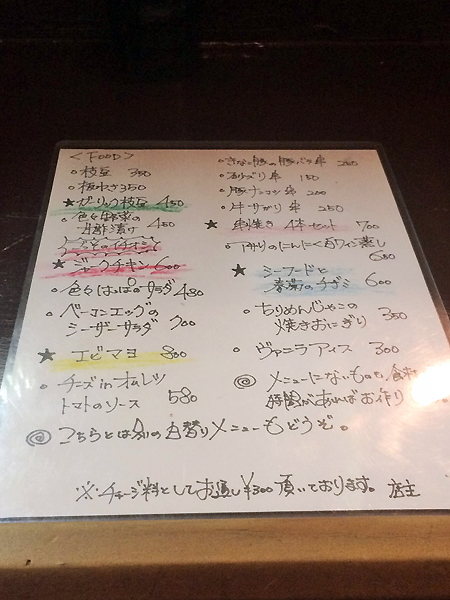 <FOOD>
・枝豆 350
・板わさ 350
★ガーリック枝豆 450
・色々野菜の
甘酢漬け 450
★ジャークチキン 600
・色々はっぱのサラダ 480
・ベーコンエッグの
シーザーサラダ 700
★エビマヨ 800
・チーズinオムレツ
トマトのソース 580
◎こちらとは別の日替りメニューもどうぞ。
・きなこ豚の豚バラ串 200
・砂ズリ串 150
・豚ナンコツ串 200
・牛サガリ串 250
★串焼き 4本セット 700
・アサリのにんにく白ワイン蒸し
680
★シーフードと
春菊のチヂミ 600
・ちりめんじゃこの
焼きおにぎり 350
・ヴァニラアイス 300
◎メニューにないものも食材
時間があればお作り
※チャージ料としてお通し¥300頂いております。 店主